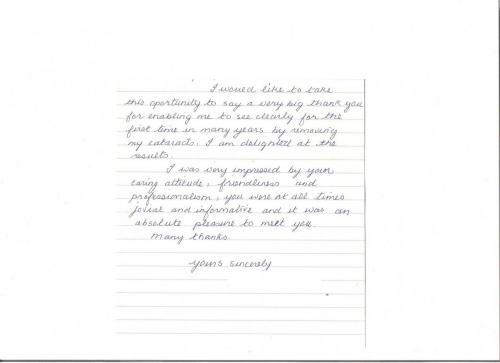 I would like to take
this oportunity to say a very big thank you
for enabling me to see clearly for the
first time in many years by removing
my cataracts. I am delighted at the
results.
I was very impressed by your
caring attitude, friendliness and
professionalism, you were at all times
jovial and informative and it was an
absolute pleasure to meet you.
Many thanks.
Yours sincerely